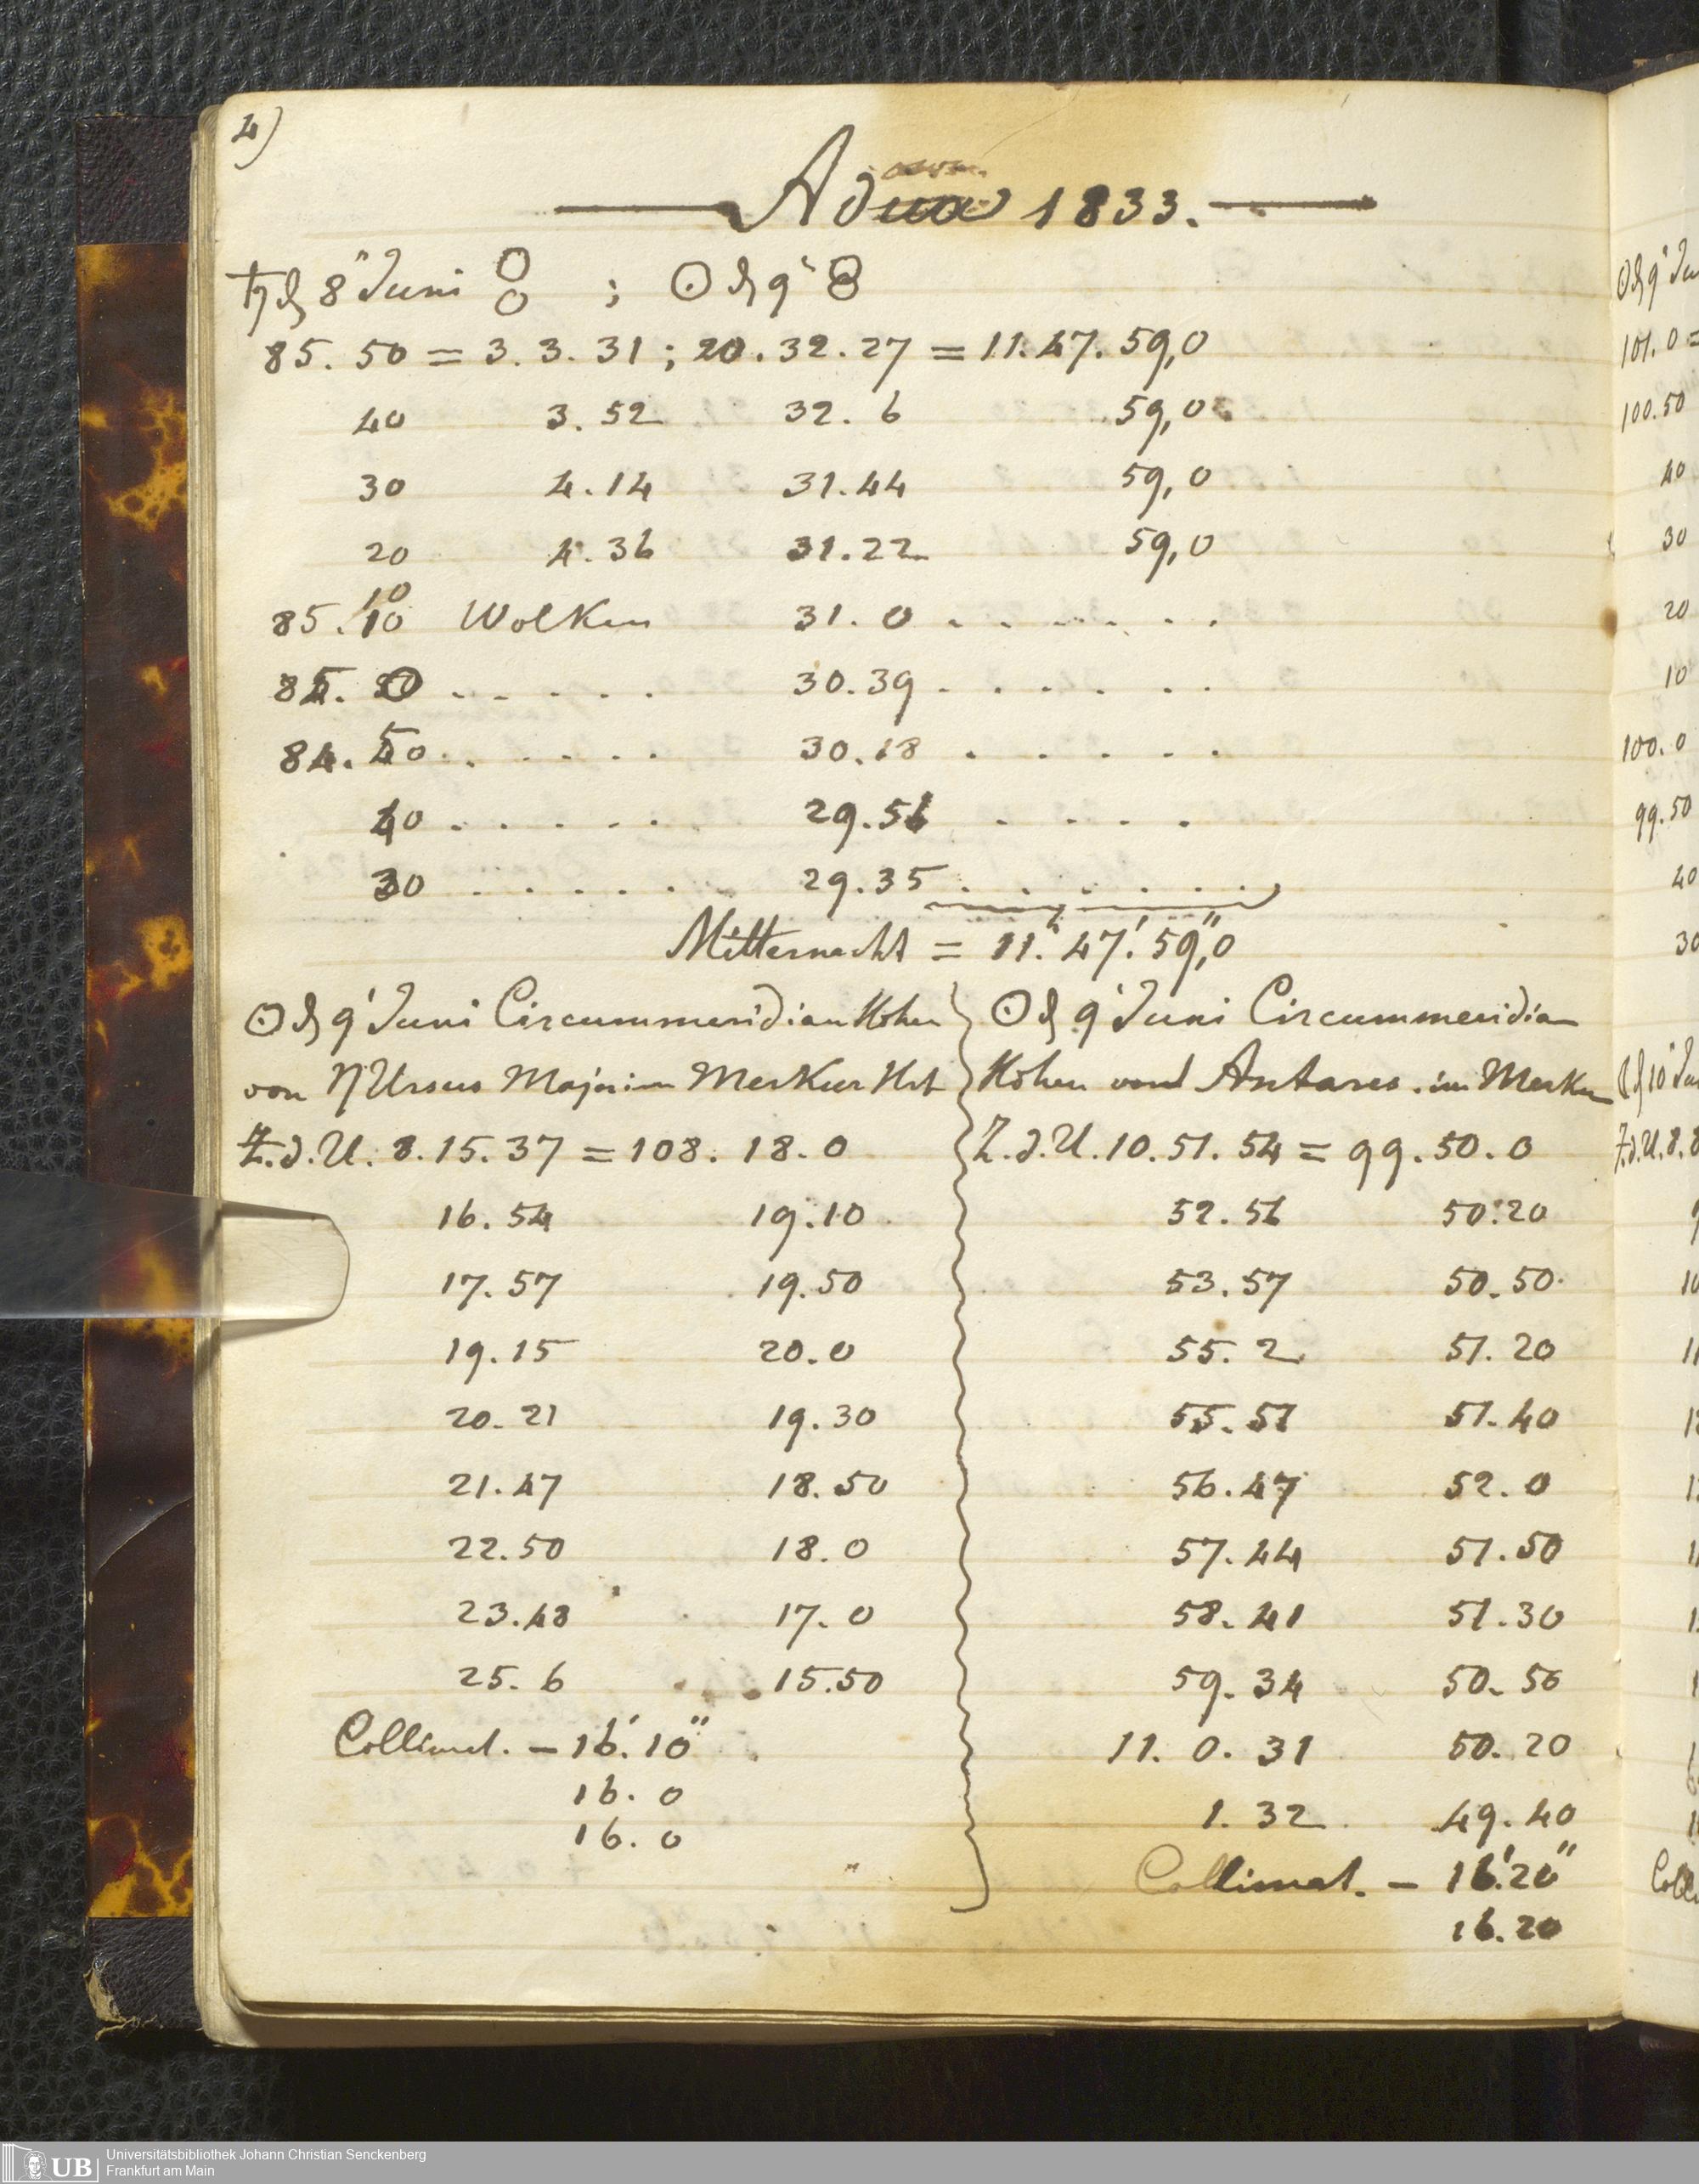 4)
Adua 1833.
♄ d 8" Juni ; ☉ d 9'
85. 50 = 3. 3. 31 ; 20. 32. 27 = 11. 47. 59,0
40 3. 52 32. 6 59,0
30 4. 14 31. 44 59,0
20 4. 36 31. 22 59,0
85. 10 Wolken 31. 0 . . . . . .
85. 0 . . . . . 30. 39 . . . . . .
84. 50 . . . . . 30. 18 . . . . .
40 . . . . . 29. 56 . . . .
30 . . . . . 29. 35 . . . . . .
Mitternacht = 11.h 47.' 59",0
☉ d 9' Juni Circummeridian Höhen
von η Ursus Major im Merkur Hrt
Z. d. U. 8. 15. 37 = 108. 18. 0
16. 54 19. 10
17. 57 19. 50
19. 15 20. 0
20. 21 19. 30
21. 47 18. 50
22. 50 18. 0
23. 48 17. 0
25. 6 15. 50
Collimat. – 16.' 10"
16. 0
16. 0
☉ d 9' Juni Circummeridian
Höhen von Antares im Merkur
Z. d. U. 10. 51. 54 = 99. 50. 0
52. 56 50. 20
53. 57 50. 50
55. 2 51. 20
55. 51 51. 40
56. 47 52. 0
57. 44 51. 50
58. 41 51. 30
59. 34 50. 50
11. 0. 31 50. 20
1. 32 49. 40
Collimat. – 16.' 20"
16. 20
☉ d 9' Ju
101. 0 =
100. 50
40
30
20
10
100. 0
99. 50
40
30
Z. d. U. 8. 8
Colli
UB
Universitätsbibliothek Johann Christian Senckenberg
Frankfurt am Main